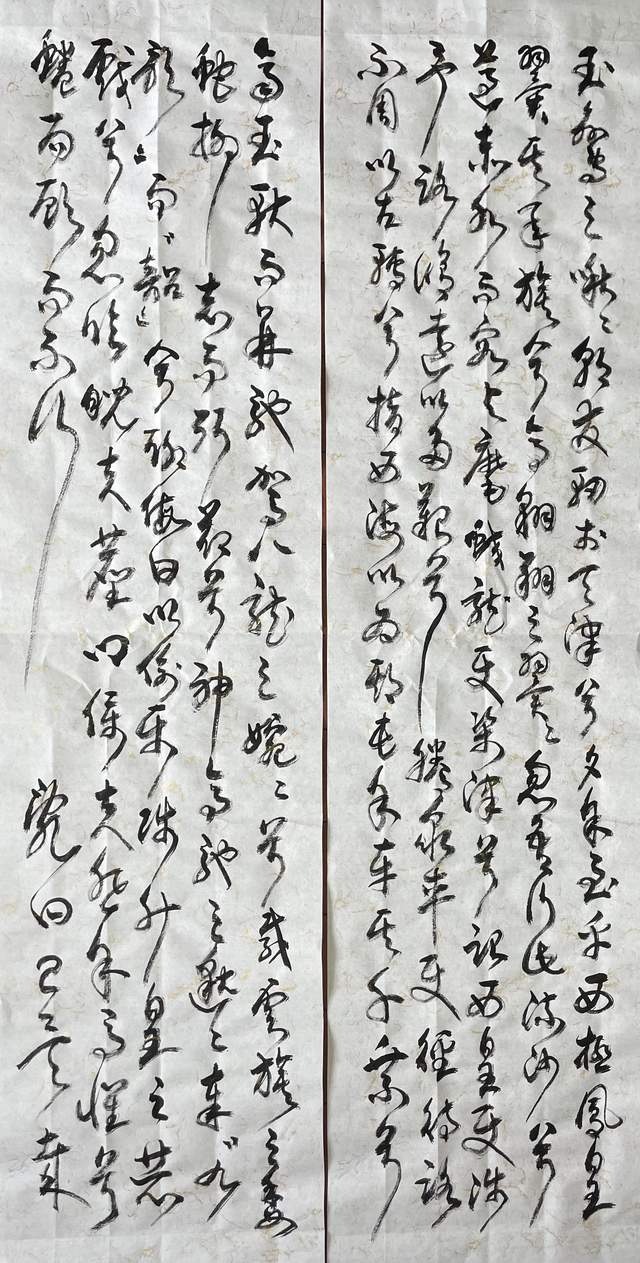 玉鸞之啾々朝發軔於天津兮夕余至乎西極鳳皇
翼其承旂兮高翱翔之翼々忽吾行此流沙兮
遵赤水而容與麾蛟龍使梁津兮詔西皇使涉
予路修遠以多艱兮騰衆車使徑待路
不周以左轉兮指西海以為期屯余車其千乘兮
齊玉軑而并馳駕八龍之婉々兮載雲旗之委
蛇抑志而弭節兮神高馳之邈々奏九
歌而韶兮聊假日以偷樂陟升皇之赫
戲兮忽臨睨夫舊鄉僕夫悲余馬懷兮
蜷局顧而不行 亂曰已矣哉